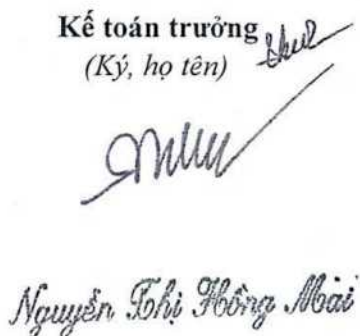 Kế toán trưởng
(Ký, họ tên)
Nguyễn Thị Hồng Mài